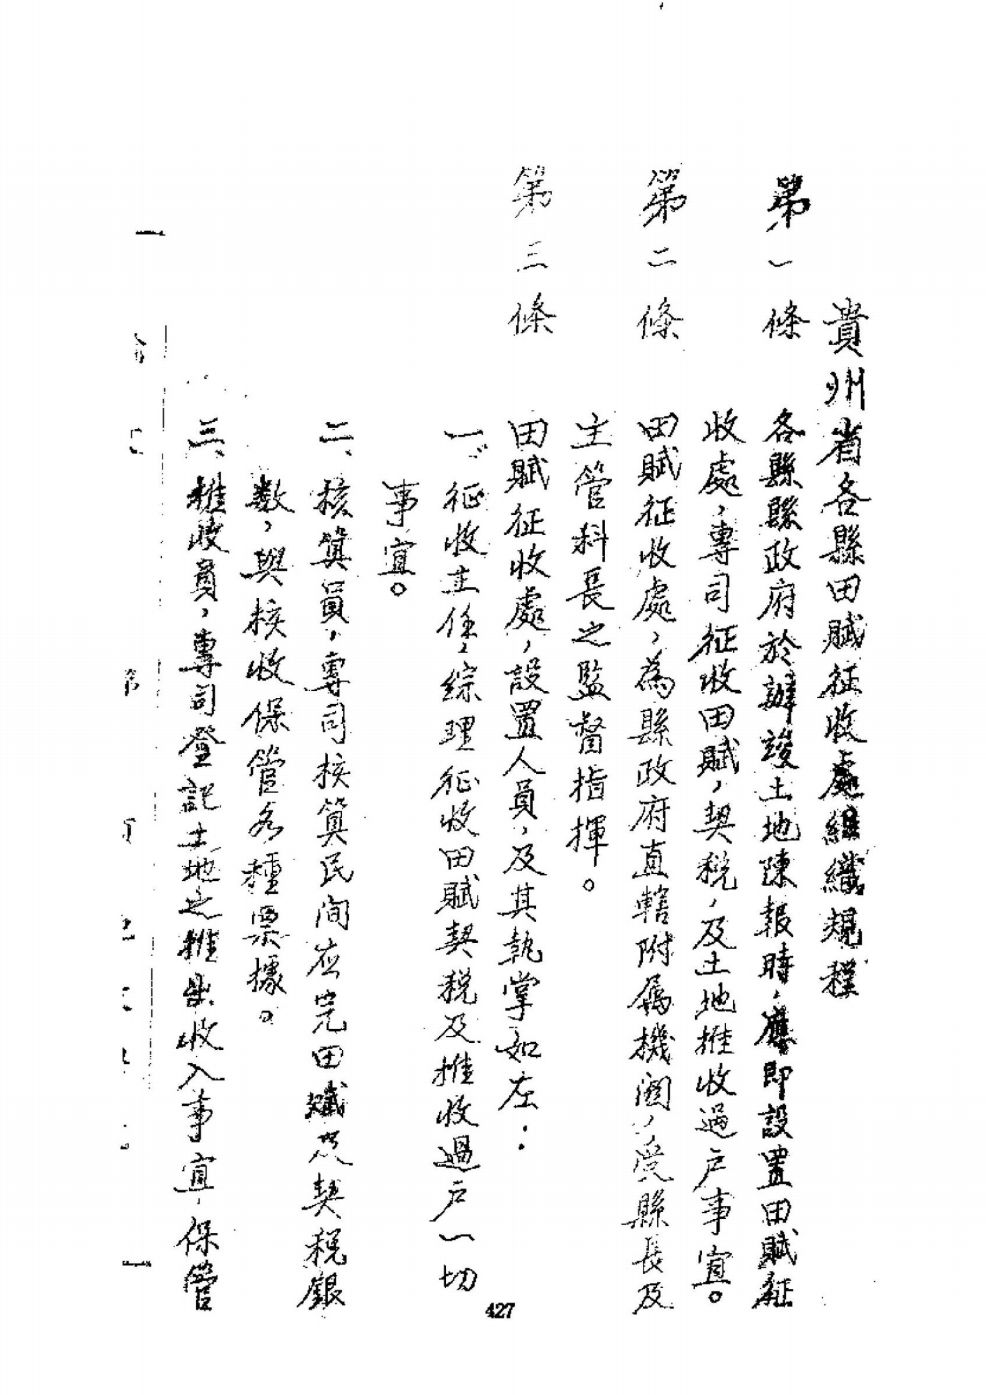 貴州省各縣田賦征收處組織規程
第一條 各縣縣政府於辦竣土地陳報時，應即設置田賦征
收處，專司征收田賦，契稅，及土地推收過户事宜。
第二條 田賦征收處，為縣政府直轄附屬機関，受縣長及
主管科長之監督指揮。
第三條 田賦征收處，設置人員，及其執掌如左：
一、征收主任，綜理征收田賦契税及推收過户一切
事宜。
二、核算員，專司核算民间應完田賦及契税銀
数，與核收保管各種票據。
三、推收員，專司登記土地之推出收入事宜，保管
427